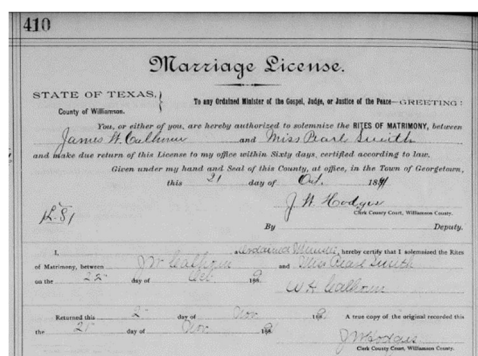 410
Marriage License.
STATE OF TEXAS,
County of Williamson.
To any Ordained Minister of the Gospel, Judge, or Justice of the Peace—GREETING:
You, or either of you, are hereby authorized to solemnize the RITES OF MATRIMONY, between
James W. Calhoun and Miss Pearl Smith
and make due return of this License to my office within Sixty days, certified according to law.
Given under my hand and Seal of this County, at office, in the Town of Georgetown,
this 21 day of Oct. 18
J W Hodges
Clerk County Court, Williamson County.
By Deputy.
I, Ordained Minister, hereby certify that I solemnized the Rites
of Matrimony, between J W Calhoun and Miss Pearl Smith
on the 25 day of Oct 18
W H Calhoun
Returned this 2 day of Nov 18 A true copy of the original recorded this
the day of Nov 18
J W Hodges
Clerk County Court, Williamson County.